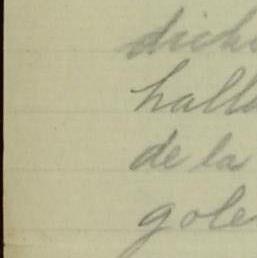 dicho
halla
de la
gole